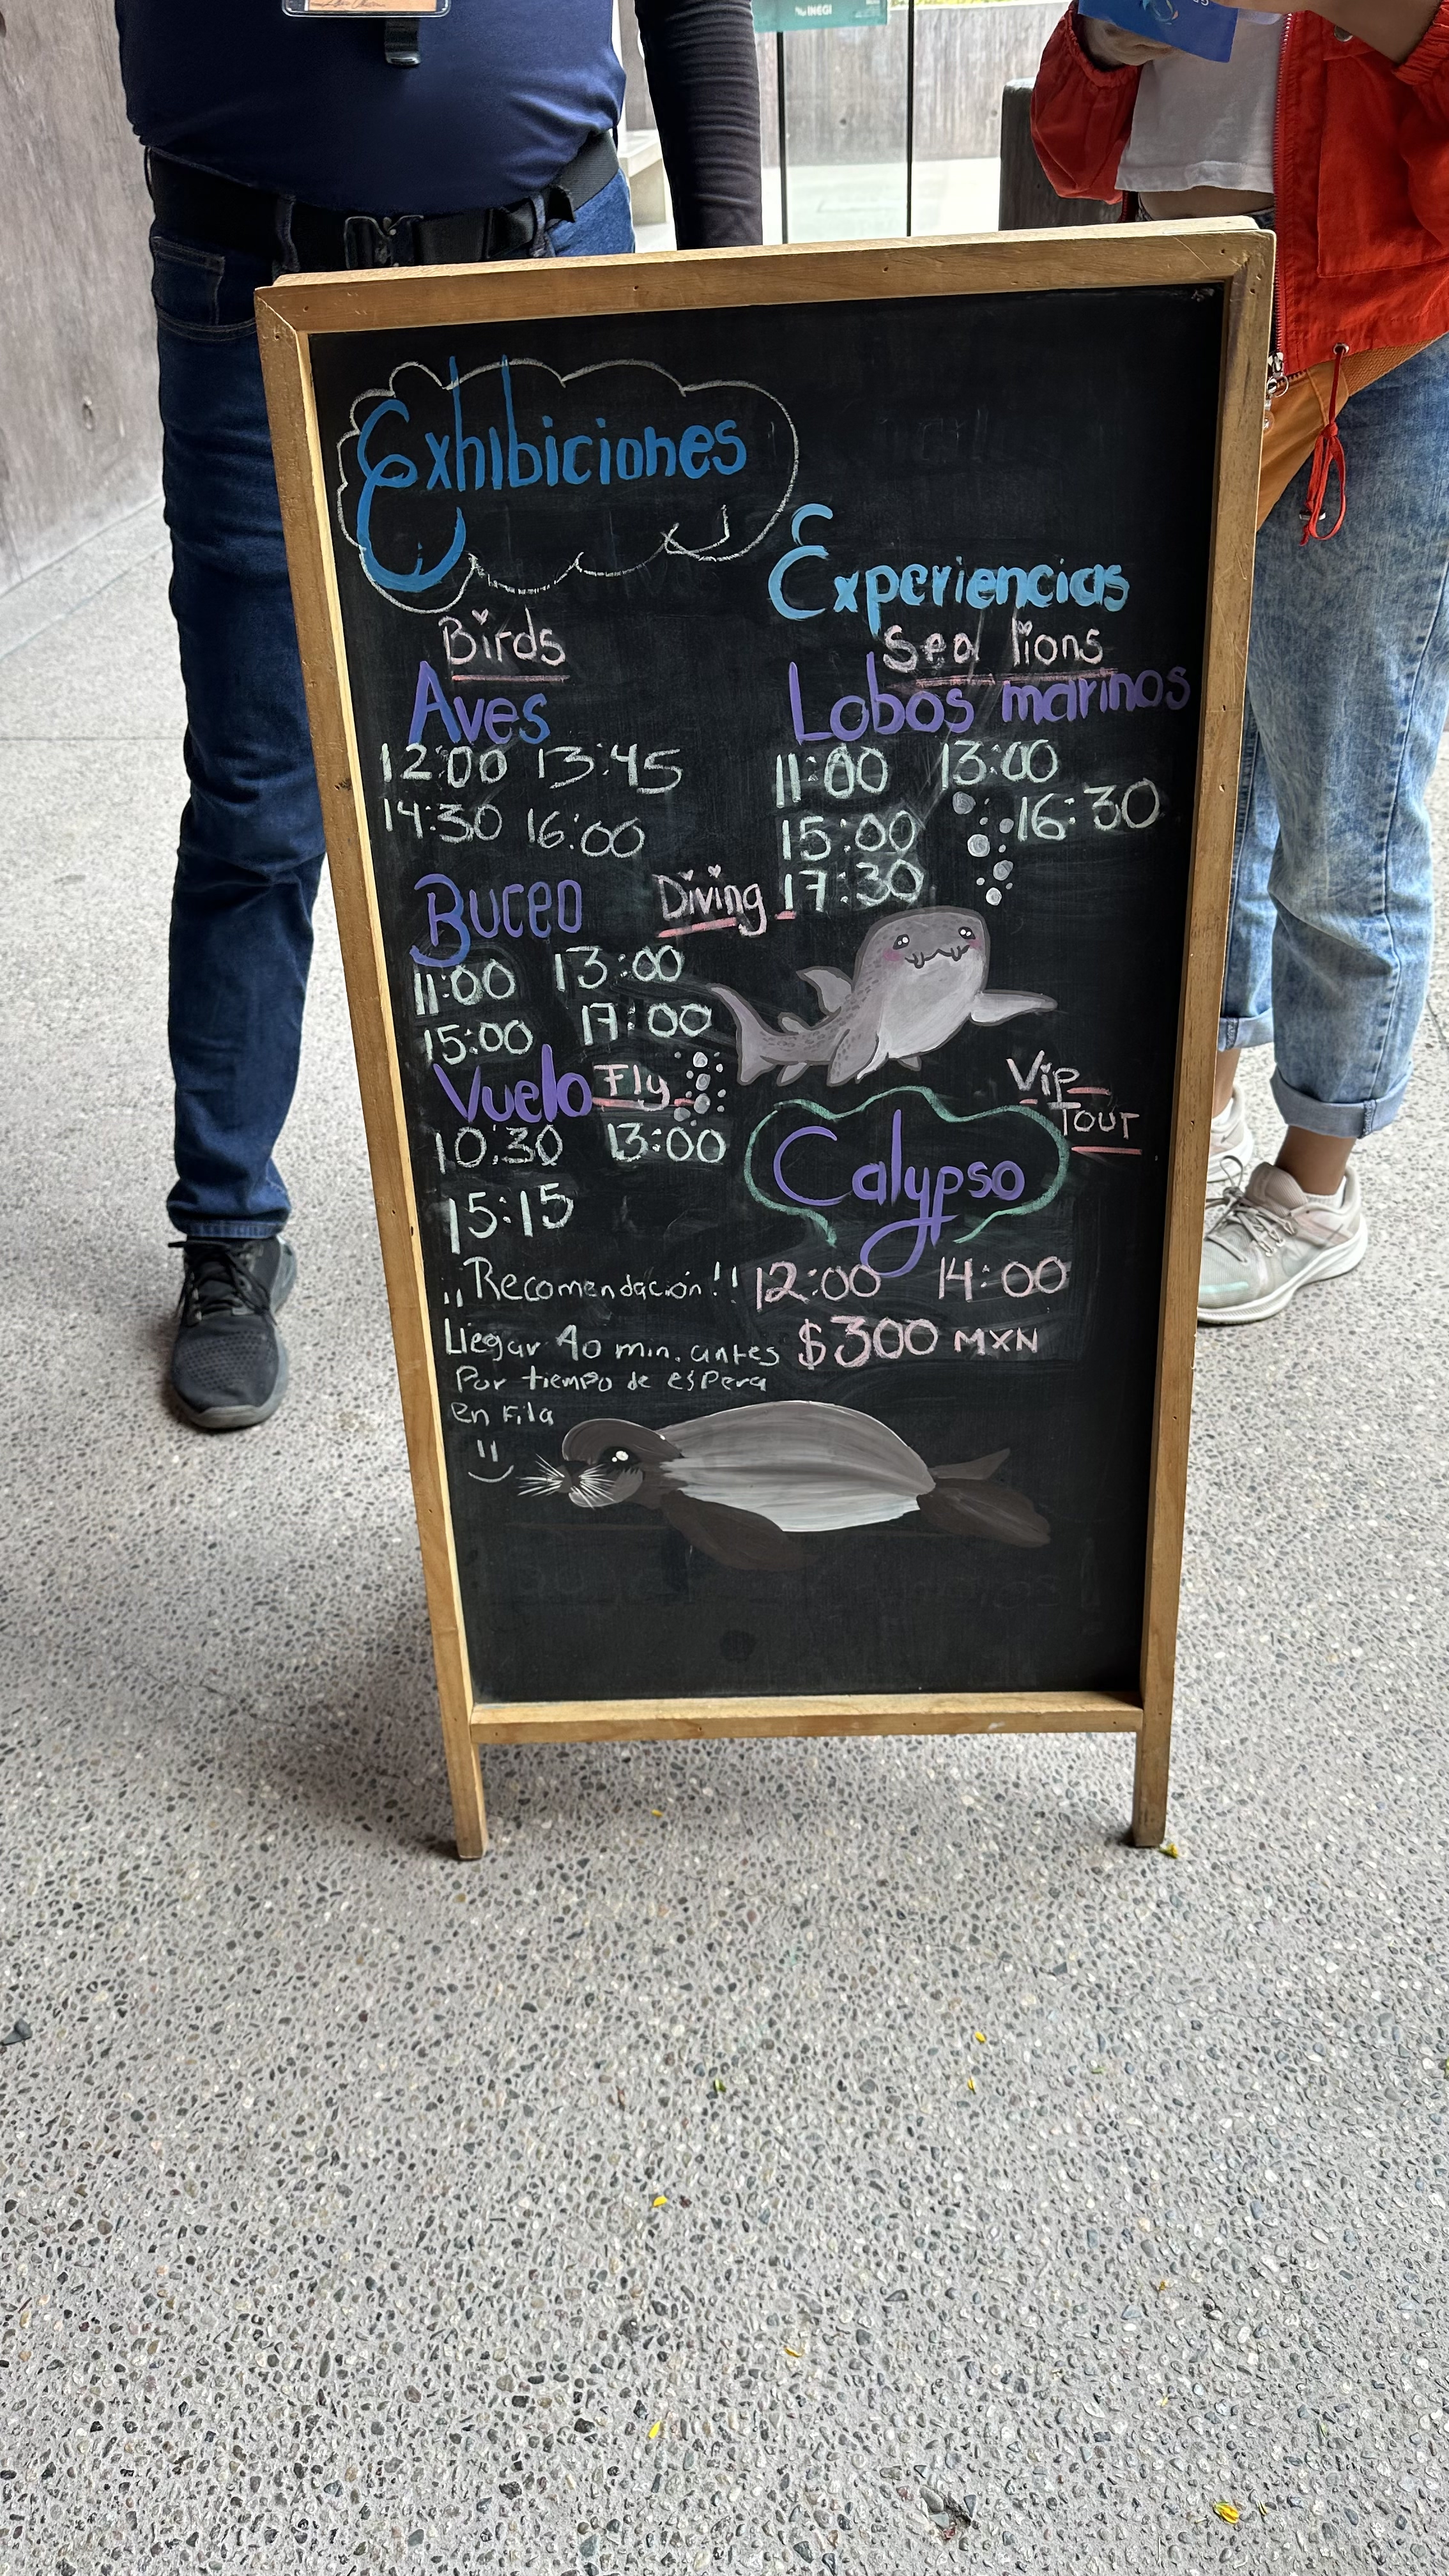 INEGI
Exhibiciones
Birds
Aves
12:00 13:45
14:30 16:00
Buceo Diving
11:00 13:00
15:00 17:00
Vuelo Fly
10:30 13:00
15:15
¡¡Recomendación!!
Llegar 40 min. antes
Por tiempo de espera
en Fila
Experiencias
Sea lions
Lobos marinos
11:00 13:00
15:00 16:30
17:30
Vip
Tour
Calypso
12:00 14:00
$300 MXN